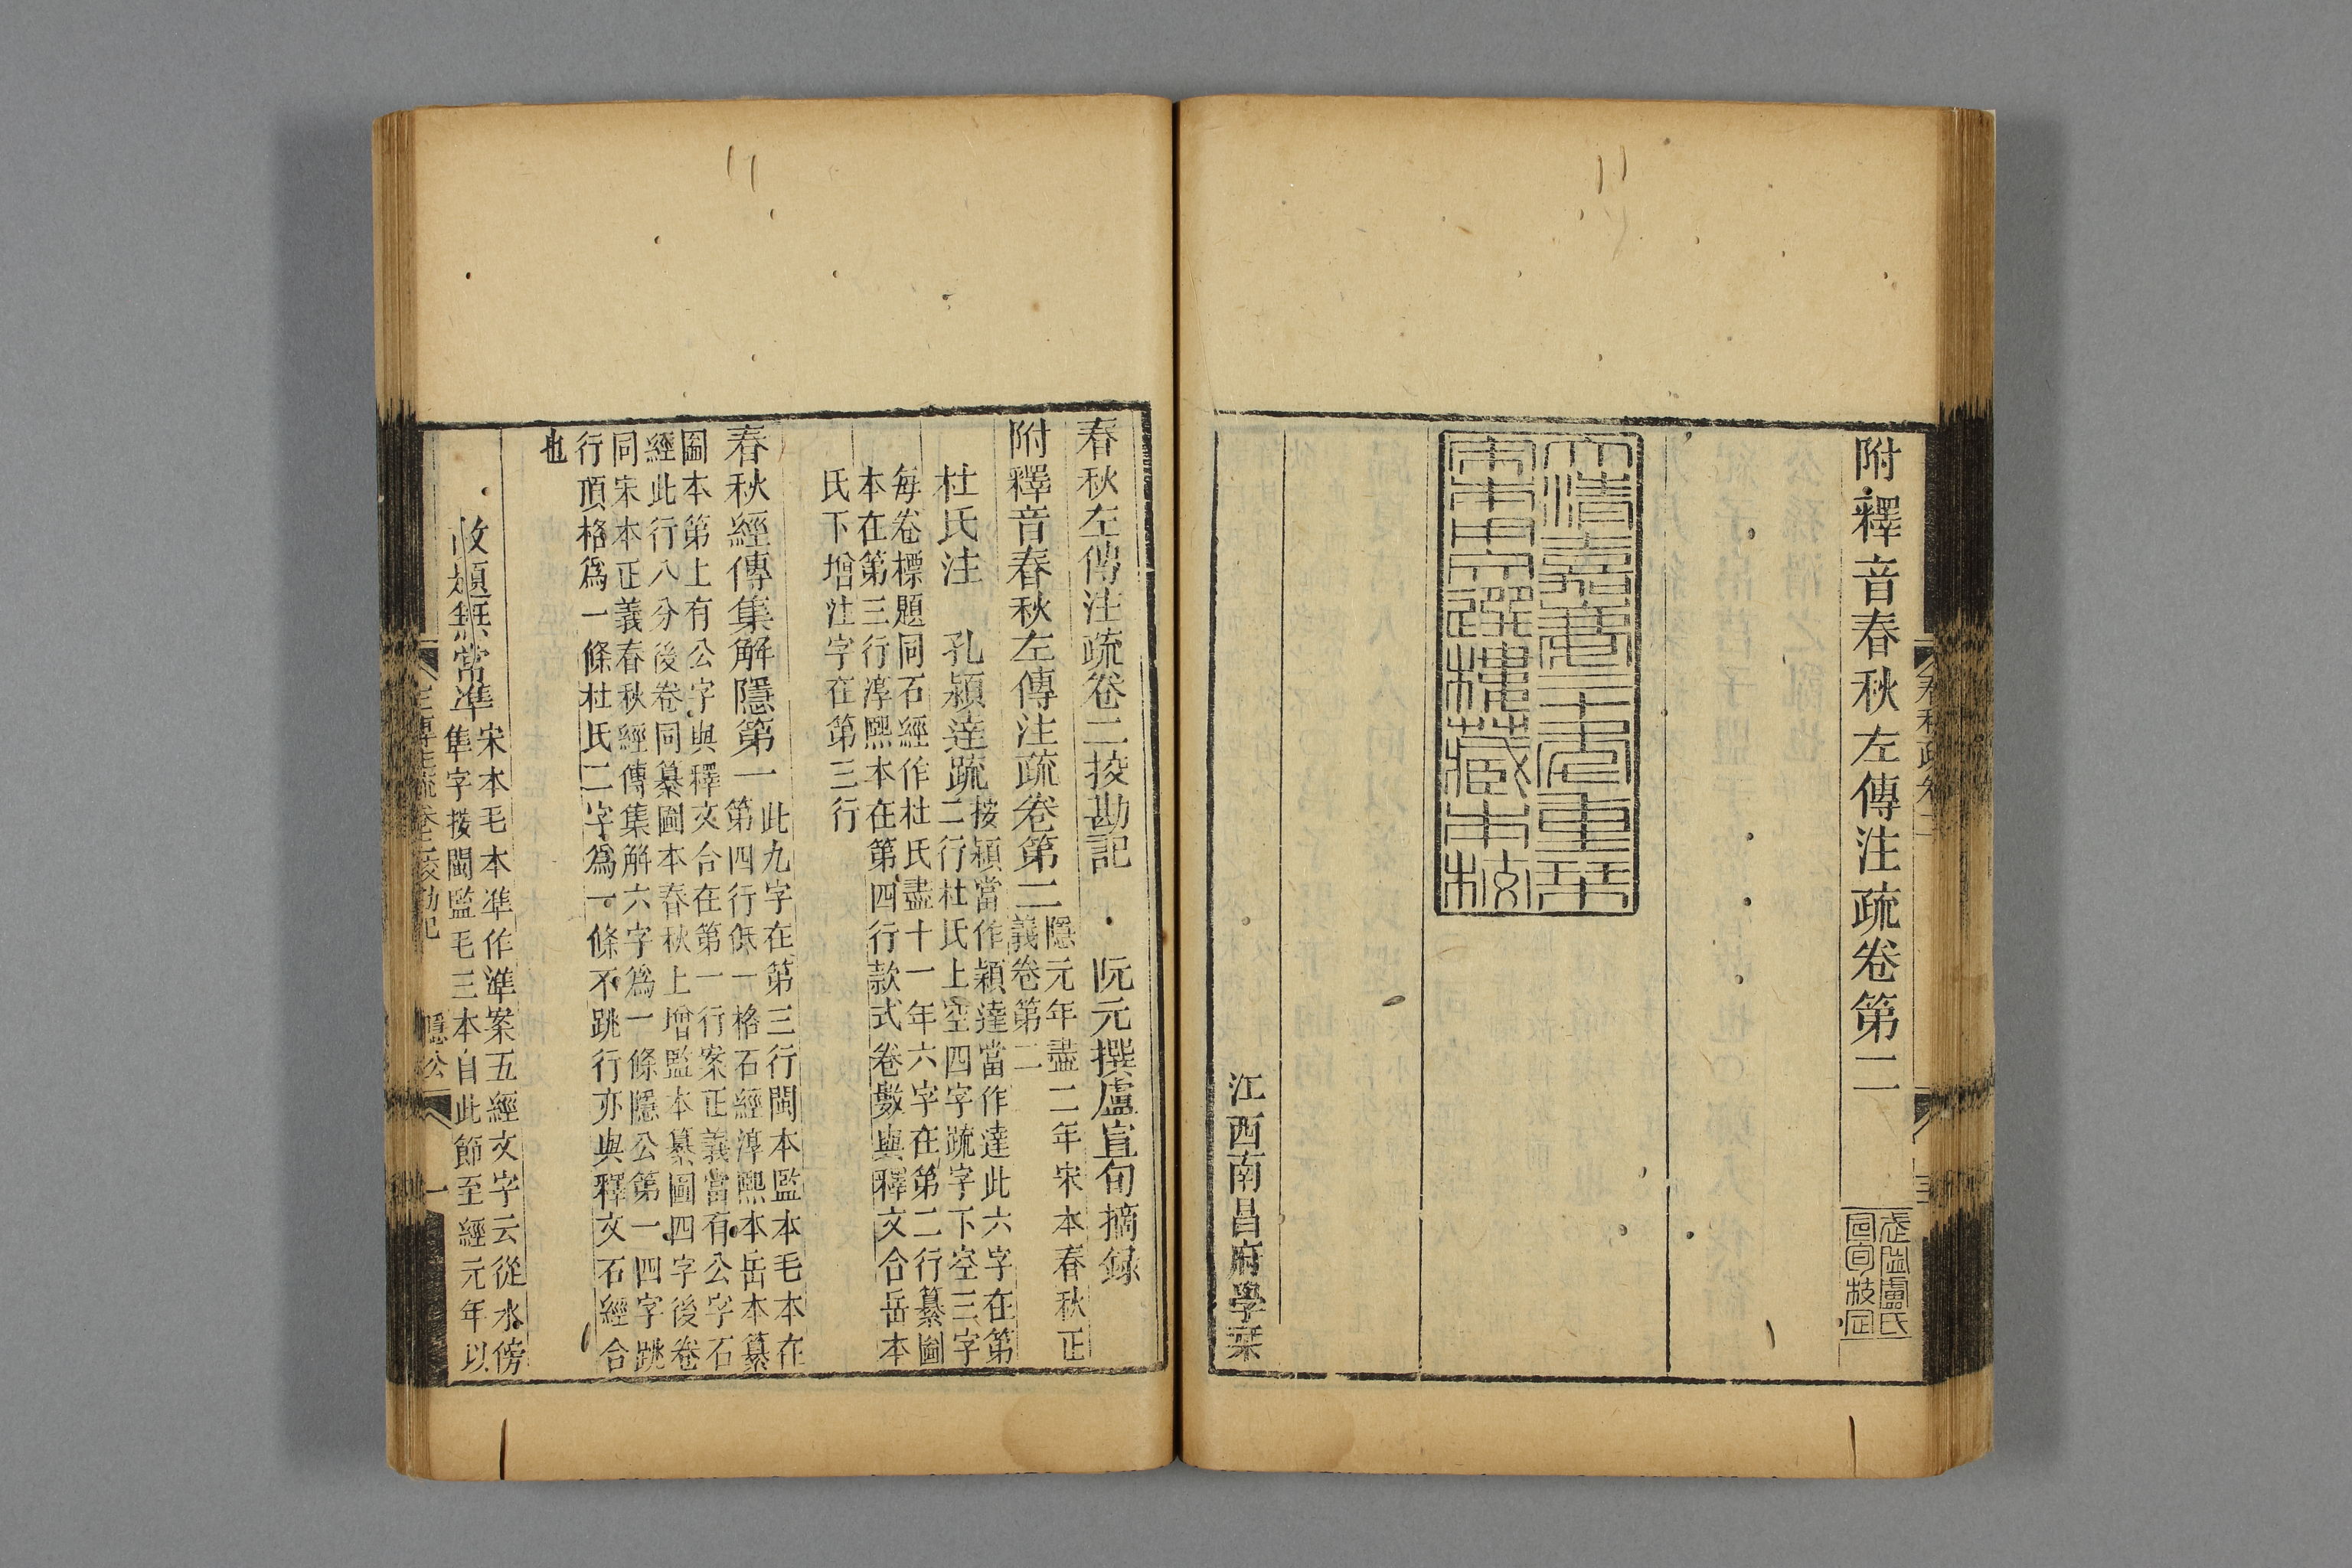 附釋音春秋左傳注疏卷第二
武寧盧氏
宣旬校定
大清嘉慶二十年重栞
宋本用文選樓藏本校
江西南昌府學栞
春秋左傳注疏卷二挍勘記 阮元撰盧宣旬摘録
附釋音春秋左傳注疏卷第二
隱元年盡二年宋本春秋正
義卷第二
杜氏注 孔穎達疏
按穎當作穎達當作達此六字在第
二行杜氏上空四字疏字下空三字
每卷標題同石經作杜氏盡十一年六字在第二行纂圖
本在第三行淳熙本在第四行款式卷數與釋文合岳本
氏下增注字在第三行
春秋經傳集解隱第一
此九字在第三行閩本監本毛本在
第四行低一格石經淳熙本岳本纂
圖本第上有公字與釋文合在第一行案正義當有公字石
經此行八分後卷同纂圖本春秋上增監本纂圖四字後卷
同宋本正義春秋經傳集解六字爲一條隱公第一四字跳
行頂格爲一條杜氏二字爲一條不跳行亦與釋文石經合
也
故題無常準
宋本毛本準作準案五經文字云從水傍
隼字挍閩監毛三本自此節至經元年以
左傳注疏卷二挍勘記 隱公 一